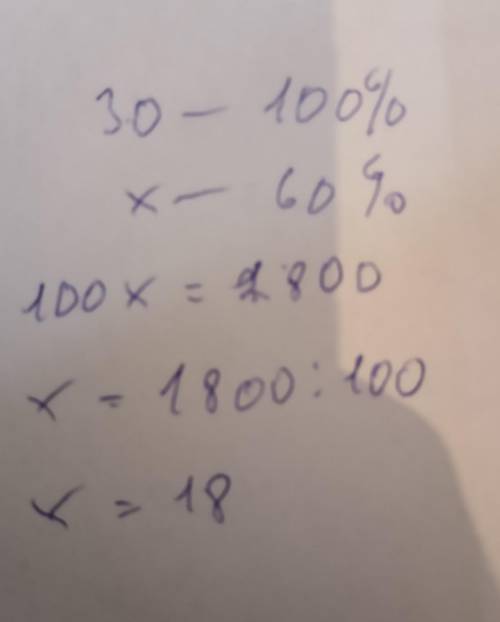 30 — 100%
x — 60%
100x = 1800
x = 1800 : 100
x = 18